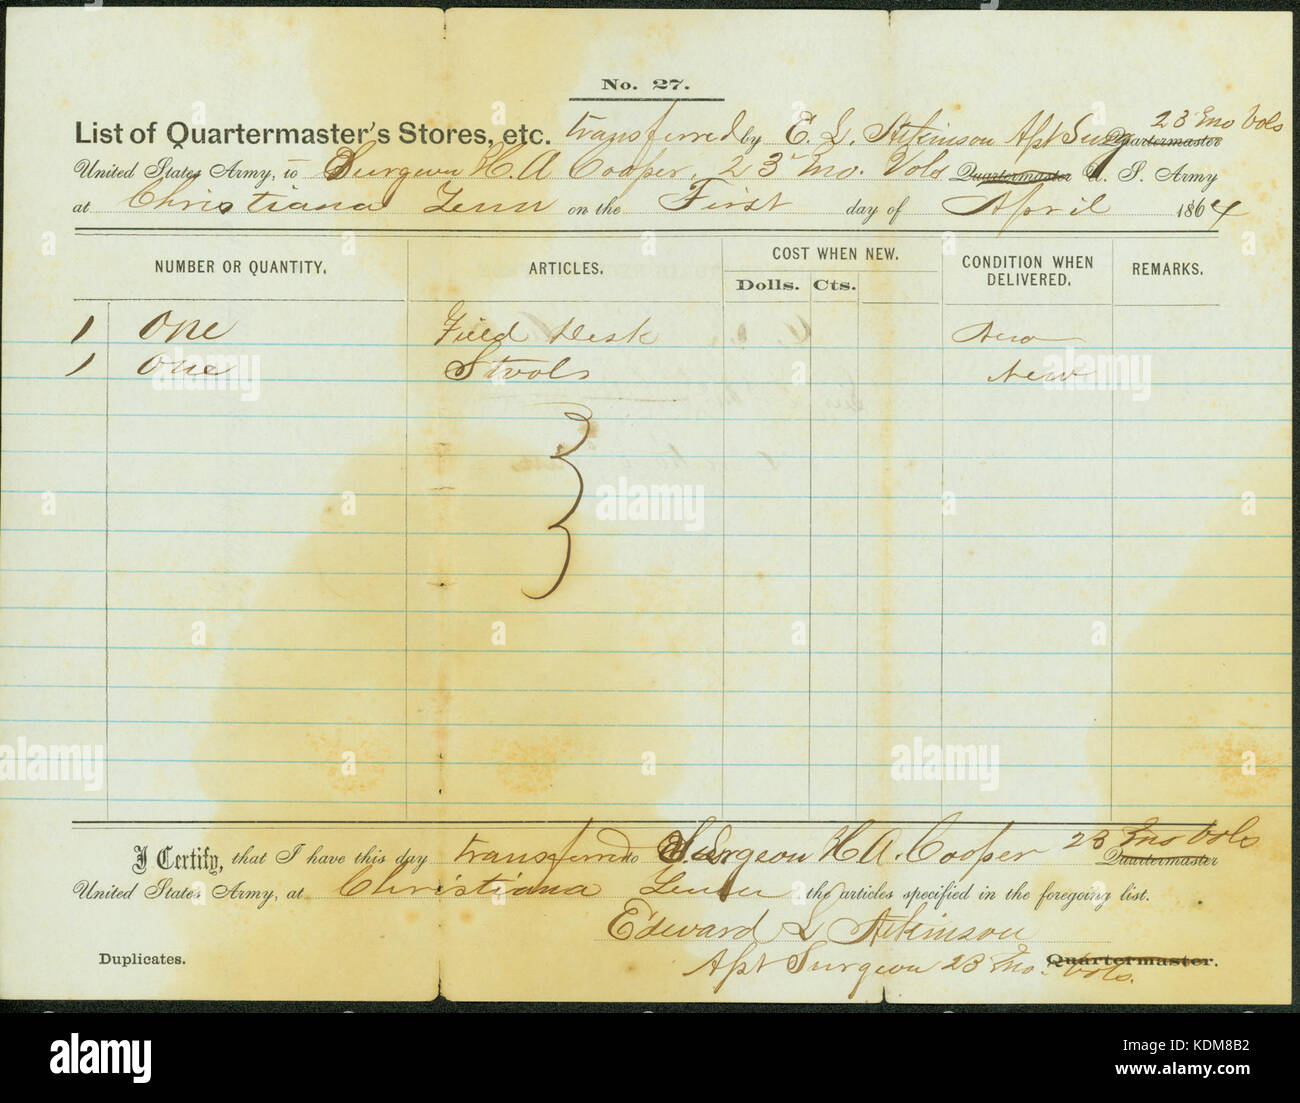 No. 27.
List of Quartermaster's Stores, etc. transferred by E. L. Atkinson Asst Surg Quartermaster 23 Mo Vols
United States Army, to Surgeon H. A Cooper, 23 Mo. Vols Quartermaster U. S. Army
at Christiana Tenn on the First day of April 1864
NUMBER OR QUANTITY. ARTICLES. COST WHEN NEW. CONDITION WHEN DELIVERED. REMARKS.
Dolls. Cts.
1 One Field Desk New
1 One Stools New
I Certify, that I have this day transferred to Surgeon H A. Cooper 23 Mo Vols Quartermaster
United States Army, at Christiana Tenn the articles specified in the foregoing list.
Edward L Atkinson
Duplicates. Asst Surgeon 23 Mo. Vols. Quartermaster.
alamy
a
alamy stock photo
KDM8B2
www.alamy.com